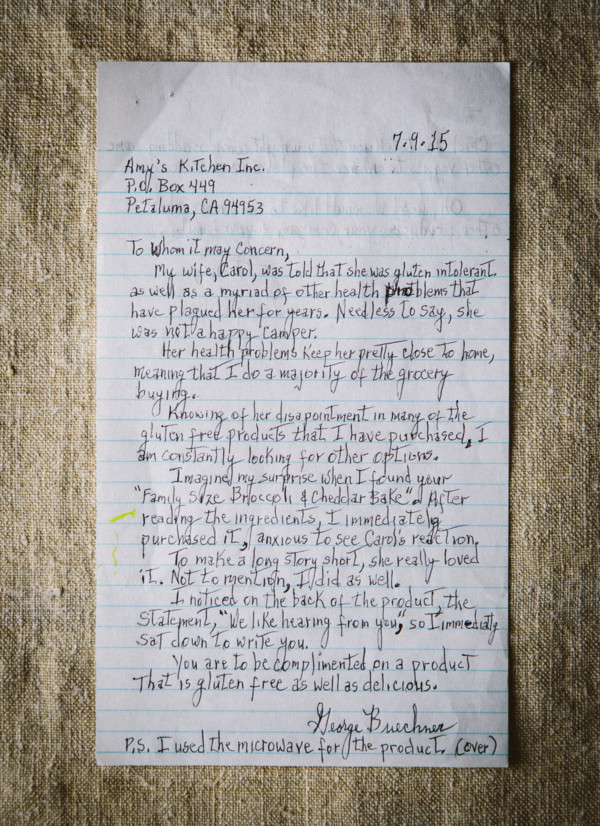 7.9.15
Amy's Kitchen Inc.
P.O. Box 449
Petaluma, CA 94953
To Whom it may Concern,
My wife, Carol, was told that she was gluten intolerant
as well as a myriad of other health problems that
have plagued her for years. Needless to say, she
was not a happy camper.
Her health problems keep her pretty close to home,
meaning that I do a majority of the grocery
buying.
Knowing of her disapointment in many of the
gluten free products that I have purchased, I
am constantly looking for other options.
Imagine my surprise when I found your
"Family Size Broccoli & Cheddar Bake". After
reading the ingredients, I immediately
purchased it, anxious to see Carol's reaction.
To make a long story short, she really loved
it. Not to mention, I did as well.
I noticed on the back of the product, the
statement, "We like hearing from you", so I immediatly
sat down to write you.
You are to be complimented on a product
that is gluten free as well as delicious.
George Buechner
P.S. I used the microwave for the product. (over)